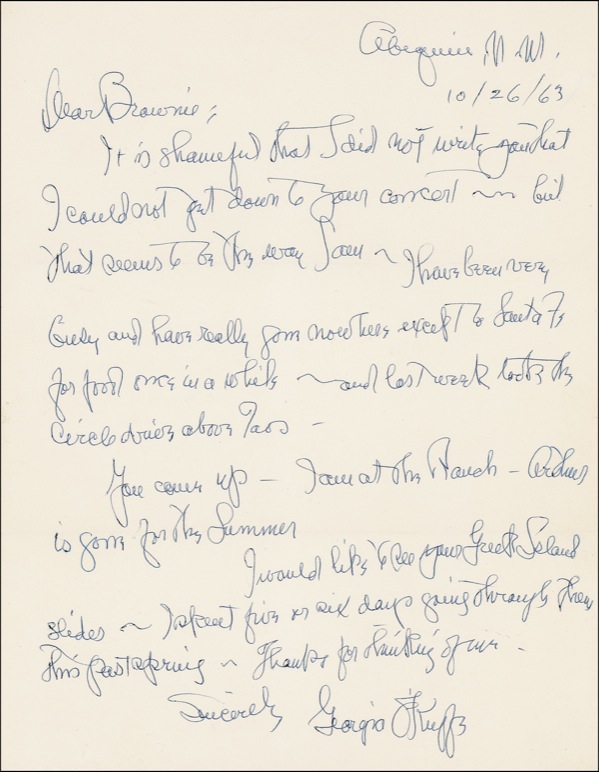 Abiquiu, N. M.
10/26/63
Dear Brownie;
It is shameful that I did not write you that
I could not get down to your concert ~ but
that seems to be the way I am ~ I have been very
busy and have really gone nowhere except to Santa Fe
for food once in a while ~ and last week took the
circle drive above Taos –
You come up – I am at the Ranch –
is gone for the Summer
I would like to see your Greek Island
slides ~ I spent five or six days going through them
this past spring ~ Thanks for thinking of me –
Sincerely Georgia O'Keeffe